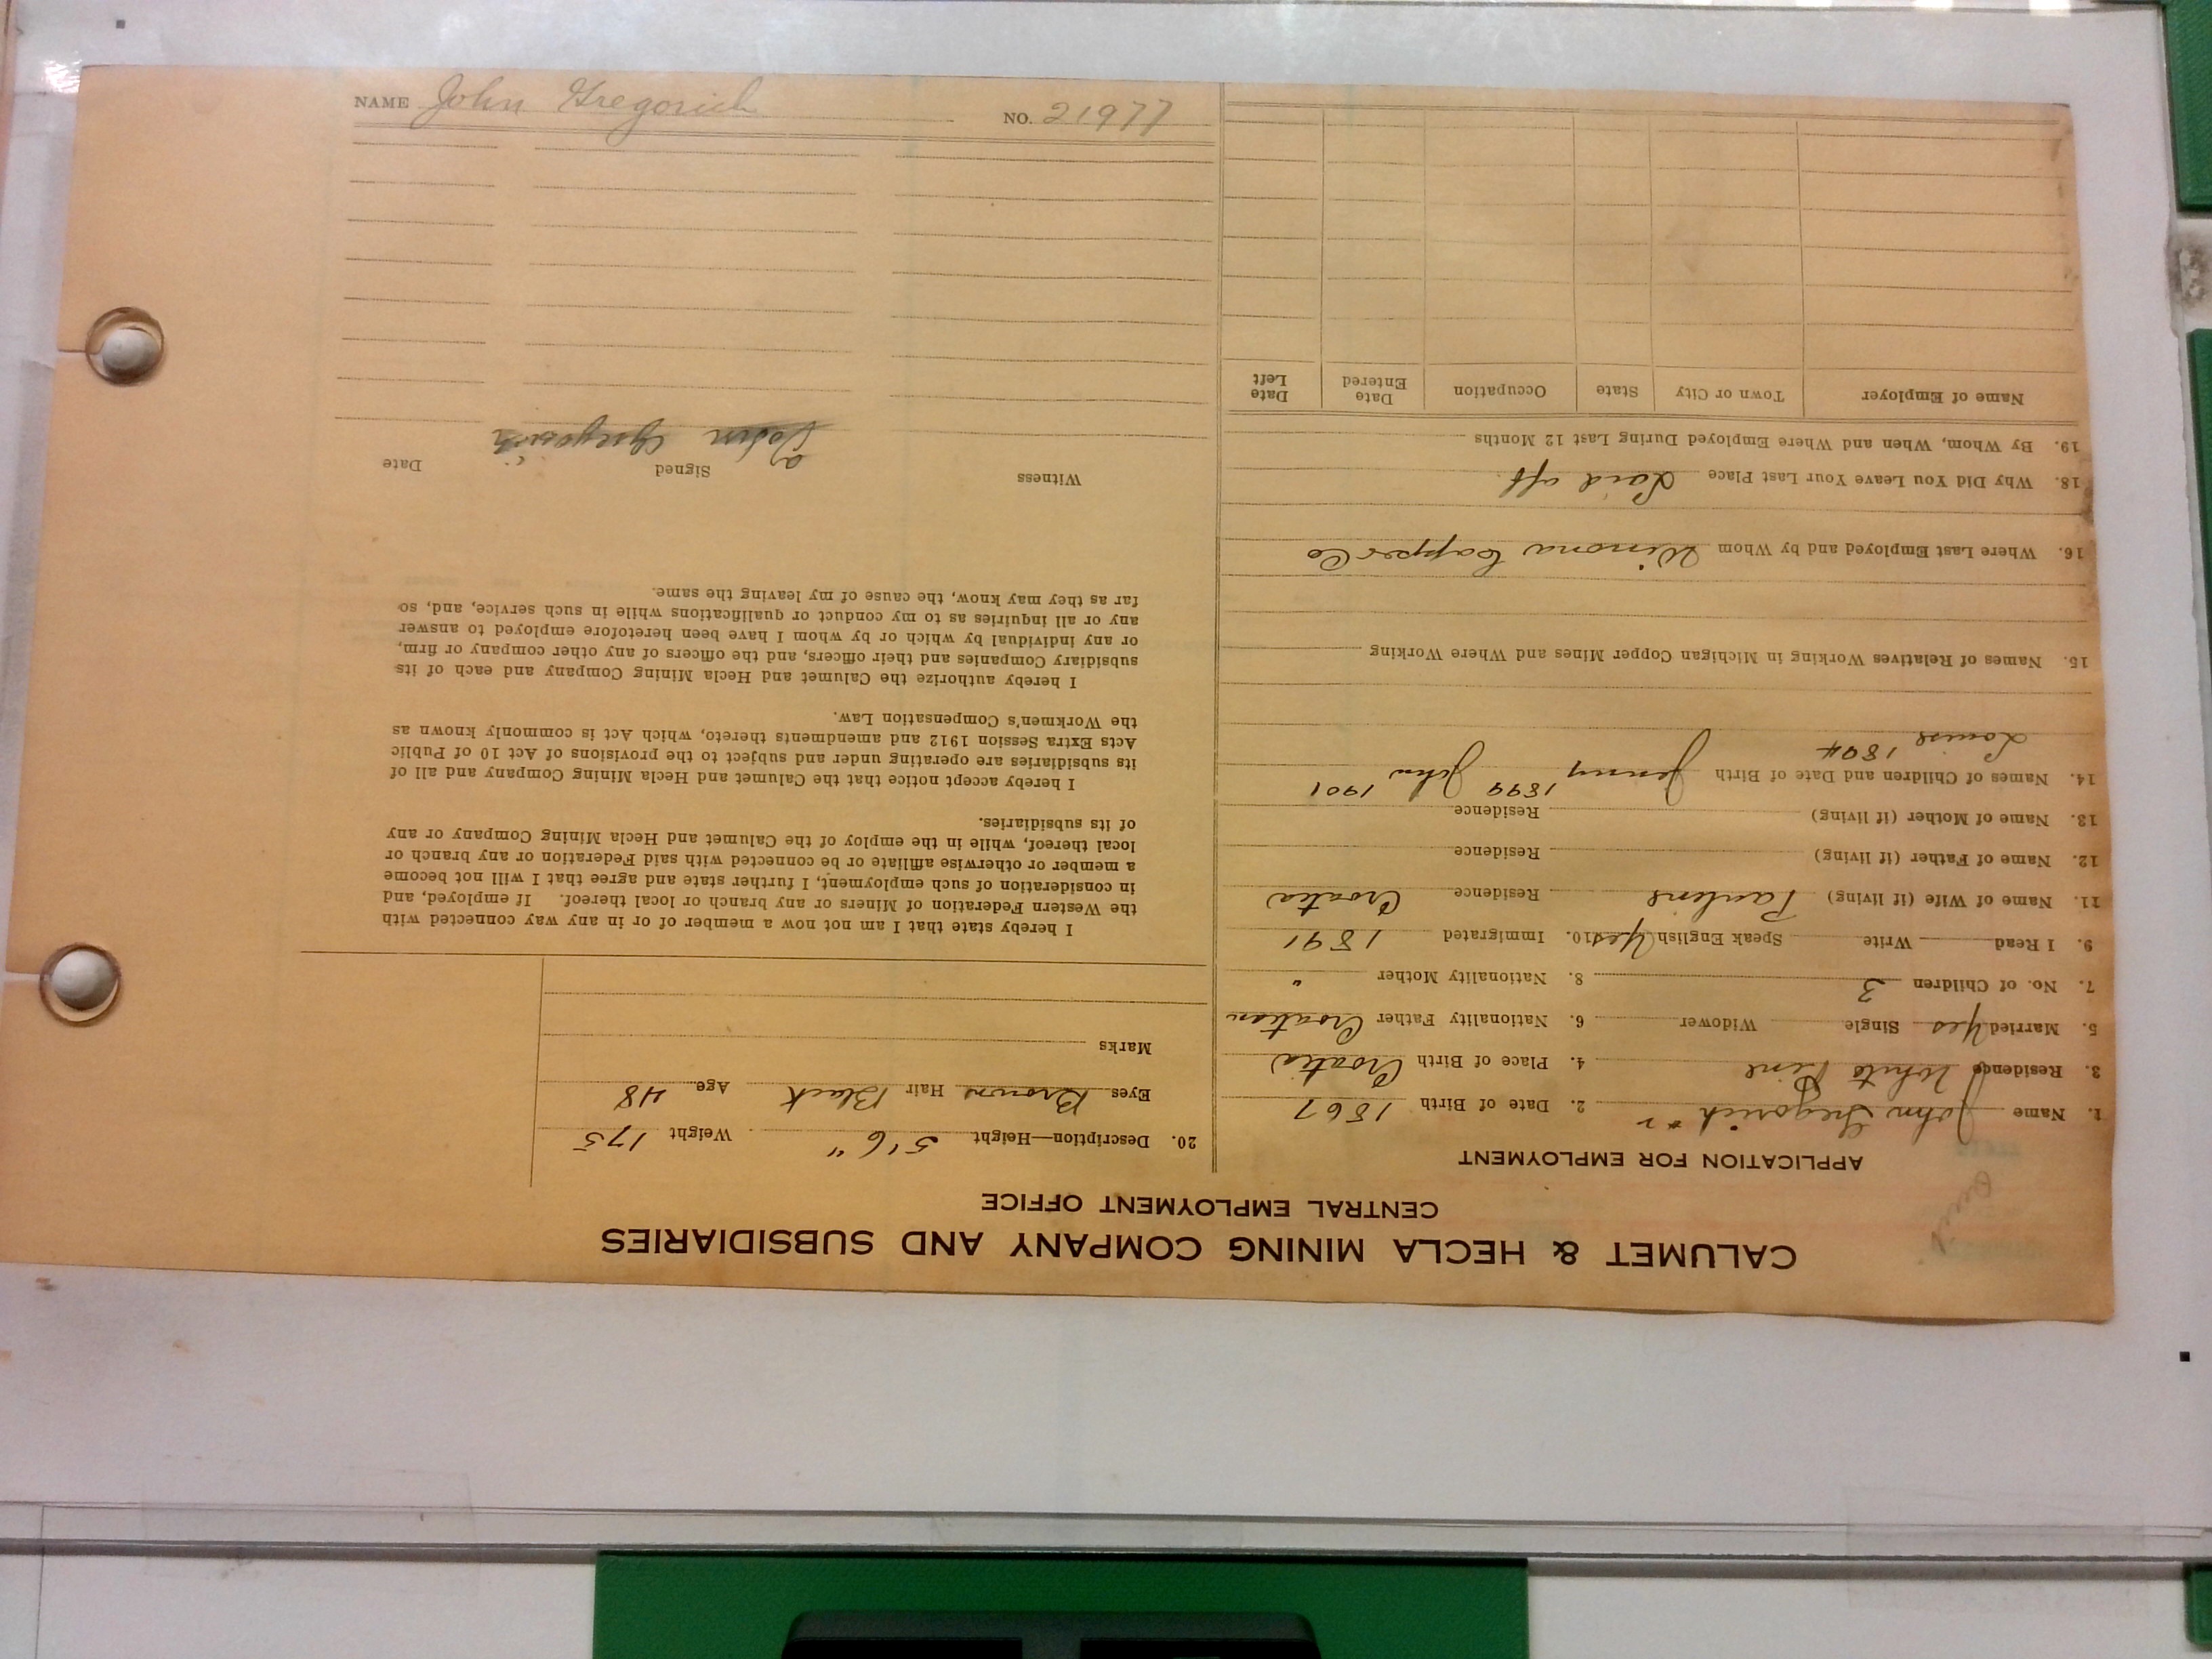 CALUMET & HECLA MINING COMPANY AND SUBSIDIARIES
CENTRAL EMPLOYMENT OFFICE
APPLICATION FOR EMPLOYMENT
1. Name John Gregorich #2 2. Date of Birth 1867
3. Residence White Pine 4. Place of Birth Croatia
5. Married Yes Single Widower 6. Nationality Father Croatian
7. No. of Children 3 8. Nationality Mother "
9. I Read Write Speak English Yes 10. Immigrated 1891
11. Name of Wife (if living) Pauline Residence Croatia
12. Name of Father (if living) Residence
13. Name of Mother (if living) Residence
14. Names of Children and Date of Birth Jenny 1899 John 1901
Louise 1894
15. Names of Relatives Working in Michigan Copper Mines and Where Working
16. Where Last Employed and by Whom Winona Copper Co
18. Why Did You Leave Your Last Place Laid off.
19. By Whom, When and Where Employed During Last 12 Months
Name of Employer Town or City State Occupation Date Entered Date Left
20. Description—Height 5'6" Weight 175
Eyes Brown Hair Black Age 48
Marks
I hereby state that I am not now a member of or in any way connected with
the Western Federation of Miners or any branch or local thereof. If employed, and
in consideration of such employment, I further state and agree that I will not become
a member or otherwise affiliate or be connected with said Federation or any branch or
local thereof, while in the employ of the Calumet and Hecla Mining Company or any
of its subsidiaries.
I hereby accept notice that the Calumet and Hecla Mining Company and all of
its subsidiaries are operating under and subject to the provisions of Act 10 of Public
Acts Extra Session 1912 and amendments thereto, which Act is commonly known as
the Workmen's Compensation Law.
I hereby authorize the Calumet and Hecla Mining Company and each of its
subsidiary Companies and their officers, and the officers of any other company or firm,
or any individual by which or by whom I have been heretofore employed to answer
any or all inquiries as to my conduct or qualifications while in such service, and, so
far as they may know, the cause of my leaving the same.
Witness Signed Date
John Gregorich
NAME John Gregorich NO. 21977